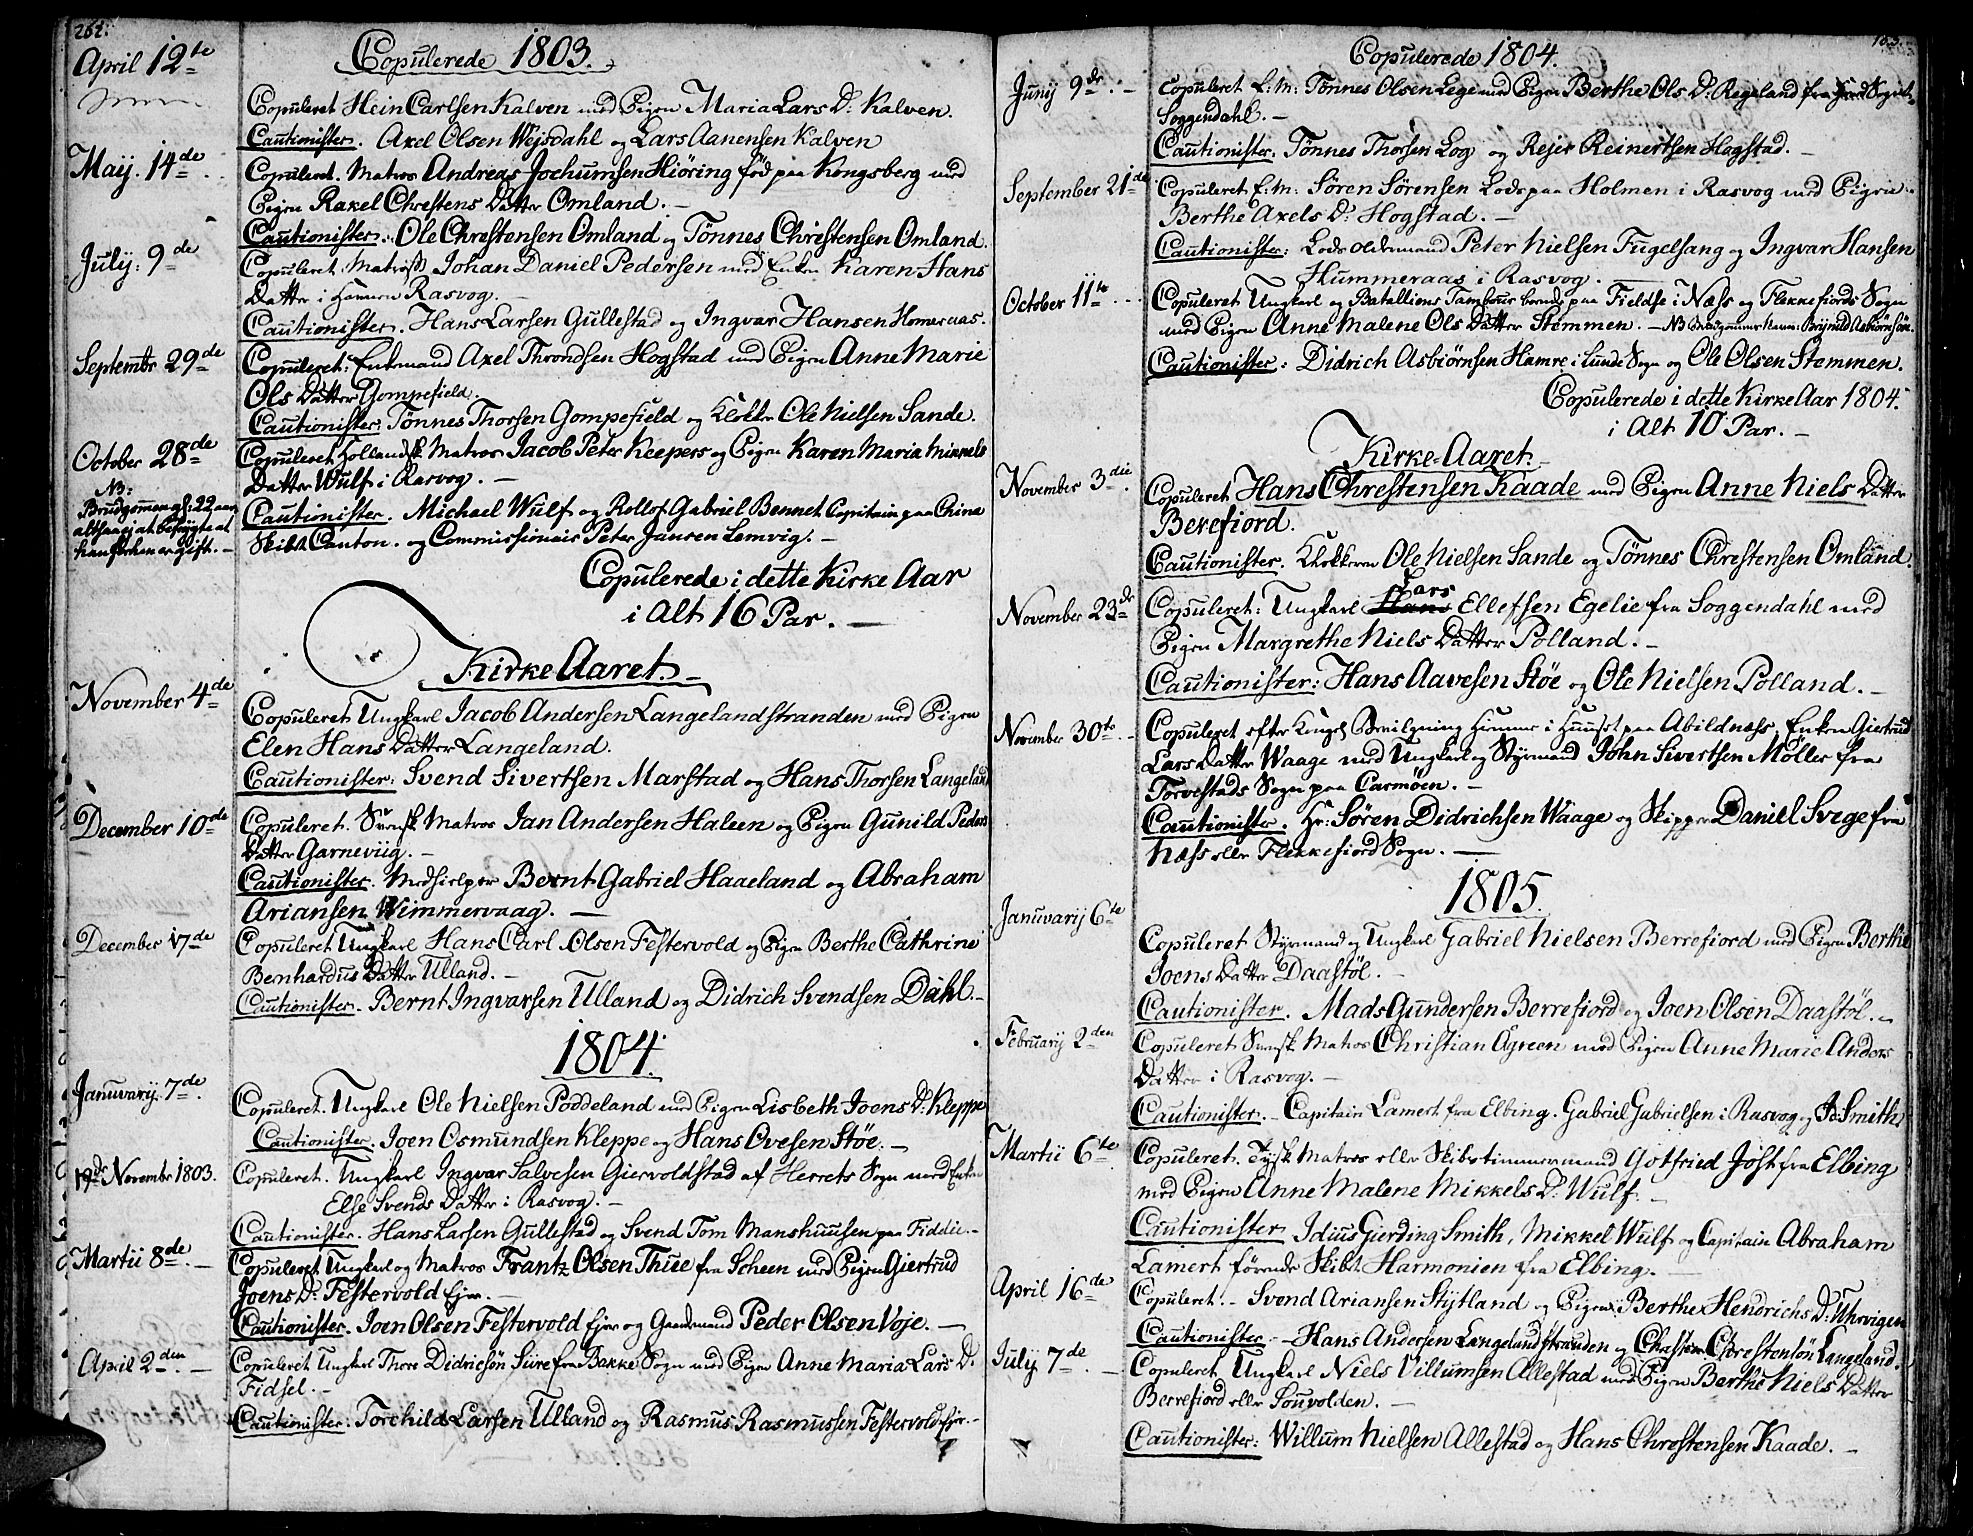 262.
Copulerede 1803.
April 12te
Copuleret Hein Carlsen Kalven med Pigen Maria Lars D. Kalven.
Cautionister. Axel Olsen Wejsdahl og Lars Aanensen Kalven
Maij. 14de
Copuleret. Matros Andreas Jochumsen Hiöring föd paa Kongsberg med
Pigen Rakel Chrestens Datter Omland. –
Cautionister. Ole Chrestensen Omland og Tönnes Christensen Omland.
July: 9de
Copuleret. Matros Johan Daniel Pedersen med Enken Karen Hans
Datter i Havnen Rasvog. –
Cautionister. Hans Larsen Gullestad og Ingvar Hansen Homeraas.
Septembr 29de
Copuleret: Enkemand Axel Throndsen Hogstad med Pigen Anne Marie
Ols Datter Gompefield.
Cautionister. Tönnes Thorsen Gompefield og Klokker Ole Nielsen Sande.
October 28de
Copuleret Hollandsk Matros Jacob Peter Keepers og Pigen Karen Maria Mikkels
Datter Wulf i Rasvog. –
NB:
Brudgommen gl: 22 aar
altsaa ej at befrygte at
han för han er gift. –
Cautionister. Michael Wulf og Rollof Gabriel Bennet Capitain paa China
Skibt Canton. og Commissionair Peter Jansen Lemvig. –
Copulerede i dette Kirke Aar
i Alt 16 Par. –
Kirke Aaret. –
November 4de
Copuleret Ungkarl Jacob Andersen Langelandstranden med Pigen
Elen Hans Datter Langeland.
Cautionister: Svend Sivertsen Marstad og Hans Thorsen Langeland
December 10de
Copuleret. Svensk Matros Jan Andersen Haleen og Pigen Gunild Peders
Datter Garneviig. –
Cautionister. Medhielper Bernt Gabriel Haaeland og Abraham
Ariansen Wimmervaag. –
December 17de
Copuleret Ungkarl Hans Carl Olsen Festervold og Pigen Berthe Cathrine
Bernhardus Datter Ulland. –
Cautionister. Bernt Ingvarsen Ulland og Didrich Svendsen Dahl. –
1804.
Januvarij 7de.
Copuleret. Ungkarl Ole Nielsen Poddeland med Pigen Lisbeth Joens D. Kleppe
Cautionister. Joen Osmundsen Kleppe og Hans Ovesen Stöe. –
19de November 1803.
Copuleret. Ungkarl Ingvar Salvesen Giervoldstad af Herrets Sogn med Enken
Else Svends Datter i Rasvog. –
Cautionister. Hans Larsen Gullestad og Svend Tom Manshuusen paa Fiddie. –
Martii 8de. –
Copuleret Ungkarl og Matros Frantz Olsen Thue fra Scheen med Pigen Giertrud
Joens D. Festervold fjer. –
Cautionister. Joen Olsen Festervold fjer og Gaardmand Peder Olsen Voje. –
April 2den –
Copuleret Ungkarl Thore Didricsön Siire fra Bakke Sogn med Pigen Anne Maria Lars D.
Fidsel. –
Cautionister. Torchild Larsen Ulland og Rasmus Rasmussen Festervold fjer. –
163.
Copulerede 1804.
Junij 9de. –
Copuleret E: M: Tönnes Olsen Lege med Pigen Berthe Ols D. Regeland fra Sogn
Soggendahl. –
Cautionister. Tönnes Thorsen Log og Rejer Reinertsen Hagstad. –
September 21de
Copuleret E: M: Sören Sörensen Lods paa Holmen i Rasvog med Pigen
Berthe Axels D. Hogstad. –
Cautionister: Lods Oldermand Peter Nielsen Fugelsang og Ingvar Hansen
Hummeraas i Rasvog. –
October 11te
Copuleret Ungkarl og Batallions Tambour boende paa Fieldse i Næss og Flekkefiords Sogn
med Pigen Anne Malene Ols Datter Stemmen. – NB Brudgommens Navn: Brynild Asbiörnsön.
Cautionister: Didrich Asbiörnsen Hamre i Lunde Sogn og Ole Olsen Stemmen.
Copulerede i dette Kirke Aar 1804.
i Alt 10 Par. –
Kirke-Aaret.
November 3die.
Copuleret Hans Chrestensen Kaade med Pigen Anne Niels Datter
Berefiord.
Cautionister. Klokkeren Ole Nielsen Sande og Tönnes Chrestensen Omland.
November 23de
Copuleret: Ungkarl Hans Lars Ellefsen Egelie fra Soggendahl med
Pigen Margrethe Niels Datter Polland. –
Cautionister: Hans Aavesen Stöe og Ole Nielsen Polland. –
November 30te
Copuleret efter Kongel Bevilgning Hiemme i Huuset paa Abildnæss, Enken Giertrud
Lars Datter Waage med Ungkarl og Styrmand John Sivertsen Möller fra
Torvestads Sogn paa Carmöen. –
Cautionister. Hr: Sören Didrichsen Waage og Skipper Daniel Svege fra
Næss eller Flekkefiord Sogn. –
1805.
Januvarij 6te
Copuleret Styrmand og Ungkarl Gabriel Nielsen Berrefiord med Pigen Berthe
Joens Datter Daastöl. –
Cautionister. Mads Gundersen Berrefiord og Joen Olsen Daastöl. –
Februarij 2den
Copuleret Svensk Matros Christian Agreen med Pigen Anne Marie Anders
Datter i Rasvog. –
Cautionister. Capitain Lamert fra Elbing. Gabriel Gabrielsen i Rasvog og Smith
Martii 6te.
Copuleret. Tydsk Matros eller Skibstimmermand Gotfried Jost fra Elbing
med Pigen Anne Malene Mikkels D. Wulf. –
Cautionister Idius Gierding Smith, Mikkel Wulf og Capitain Abraham
Lamert förende Skibt Harmonien fra Elbing. –
April 16de
Copuleret. – Svend Ariansen Stijtland og Pigen Berthe Hendrichs D.
Cautionister – Hans Andersen Langelandstranden og Chresten Chrestensön Langeland.
July 7de. –
Copuleret Ungkarl Niels Villumsen Allestad med Pigen Berthe Niels Datter
Berrefiord eller Souvolden. –
Cautionister: Willum Nielsen Allestad og Hans Chrestensen Kaade. –